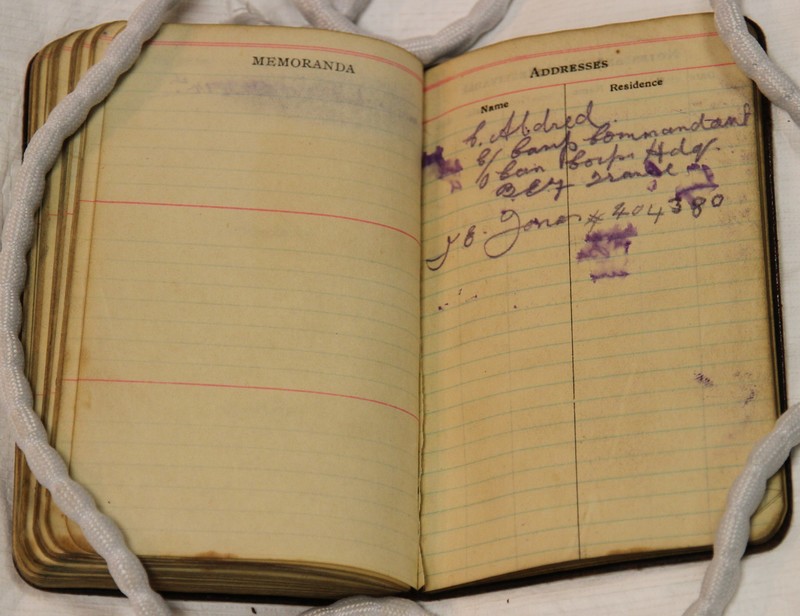 MEMORANDA
ADDRESSES
Name Residence
C. Aldred.
C/ Camp Commandant
Can Corps Hdq.
B.E.F France
J E. Jones # 404380